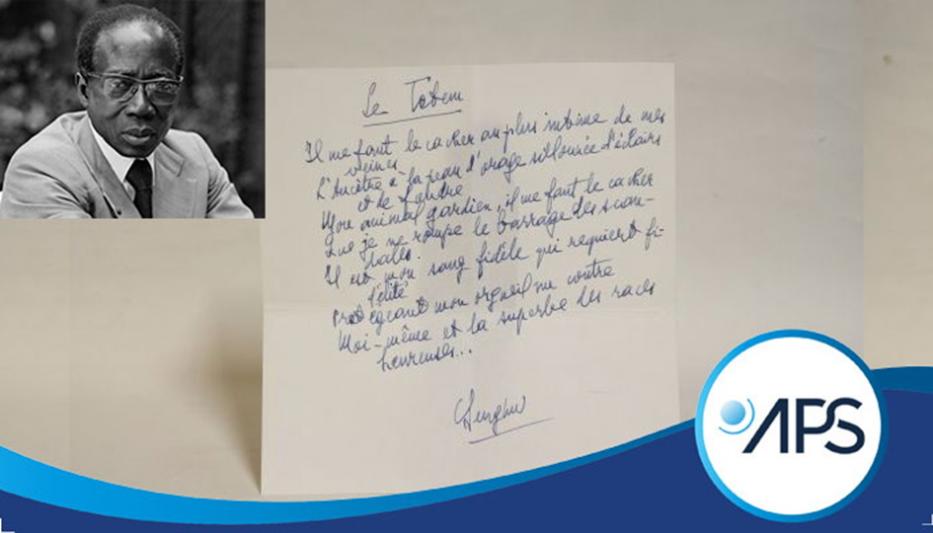 Le Totem
Il me faut le cacher au plus intime de mes
veines
L'Ancêtre à la peau d'orage sillonnée d'éclairs
et de foudre
Mon animal gardien, il me faut le cacher
Que je ne rompe le barrage des scan-
dales.
Il est mon sang fidèle qui requiert fi-
délité
Protégeant mon orgueil nu contre
Moi-même et la superbe des races
heureuses...
Senghor
APS